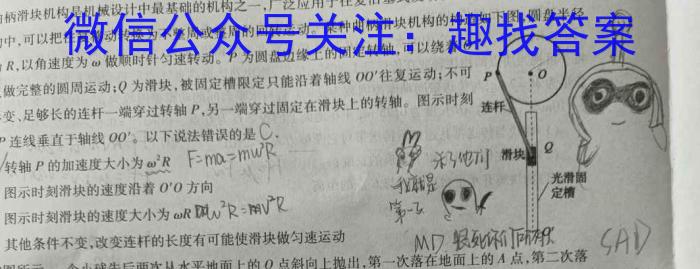 曲柄滑块机构是机械设计中最基础的机构之一,广泛应用于往复
微信公众号关注:趣找答案
R,以角速度为ω做顺时针匀速转动。P为圆盘边缘上的固定转轴,可以绕着O
做完整的圆周运动;Q为滑块,被固定槽限定只能沿着轴线OO′往复运动;不可
变、足够长的连杆一端穿过转轴P,另一端穿过固定在滑块上的转轴。图示时刻
P连线垂直于轴线OO′。以下说法错误的是C.
转轴P的加速度大小为ω²R F=ma=mω²R
图示时刻滑块的速度沿着O′O方向
图示时刻滑块的速度大小为ωR
其他条件不变,改变连杆的长度有可能使滑块做匀速运动
一个小球先后两次从水平地面上的O点斜向上抛出,第一次落在地面上的A点,第二次落
P
O
连杆
滑块
Q
光滑固
定槽
我就是
第一
MD
SAD